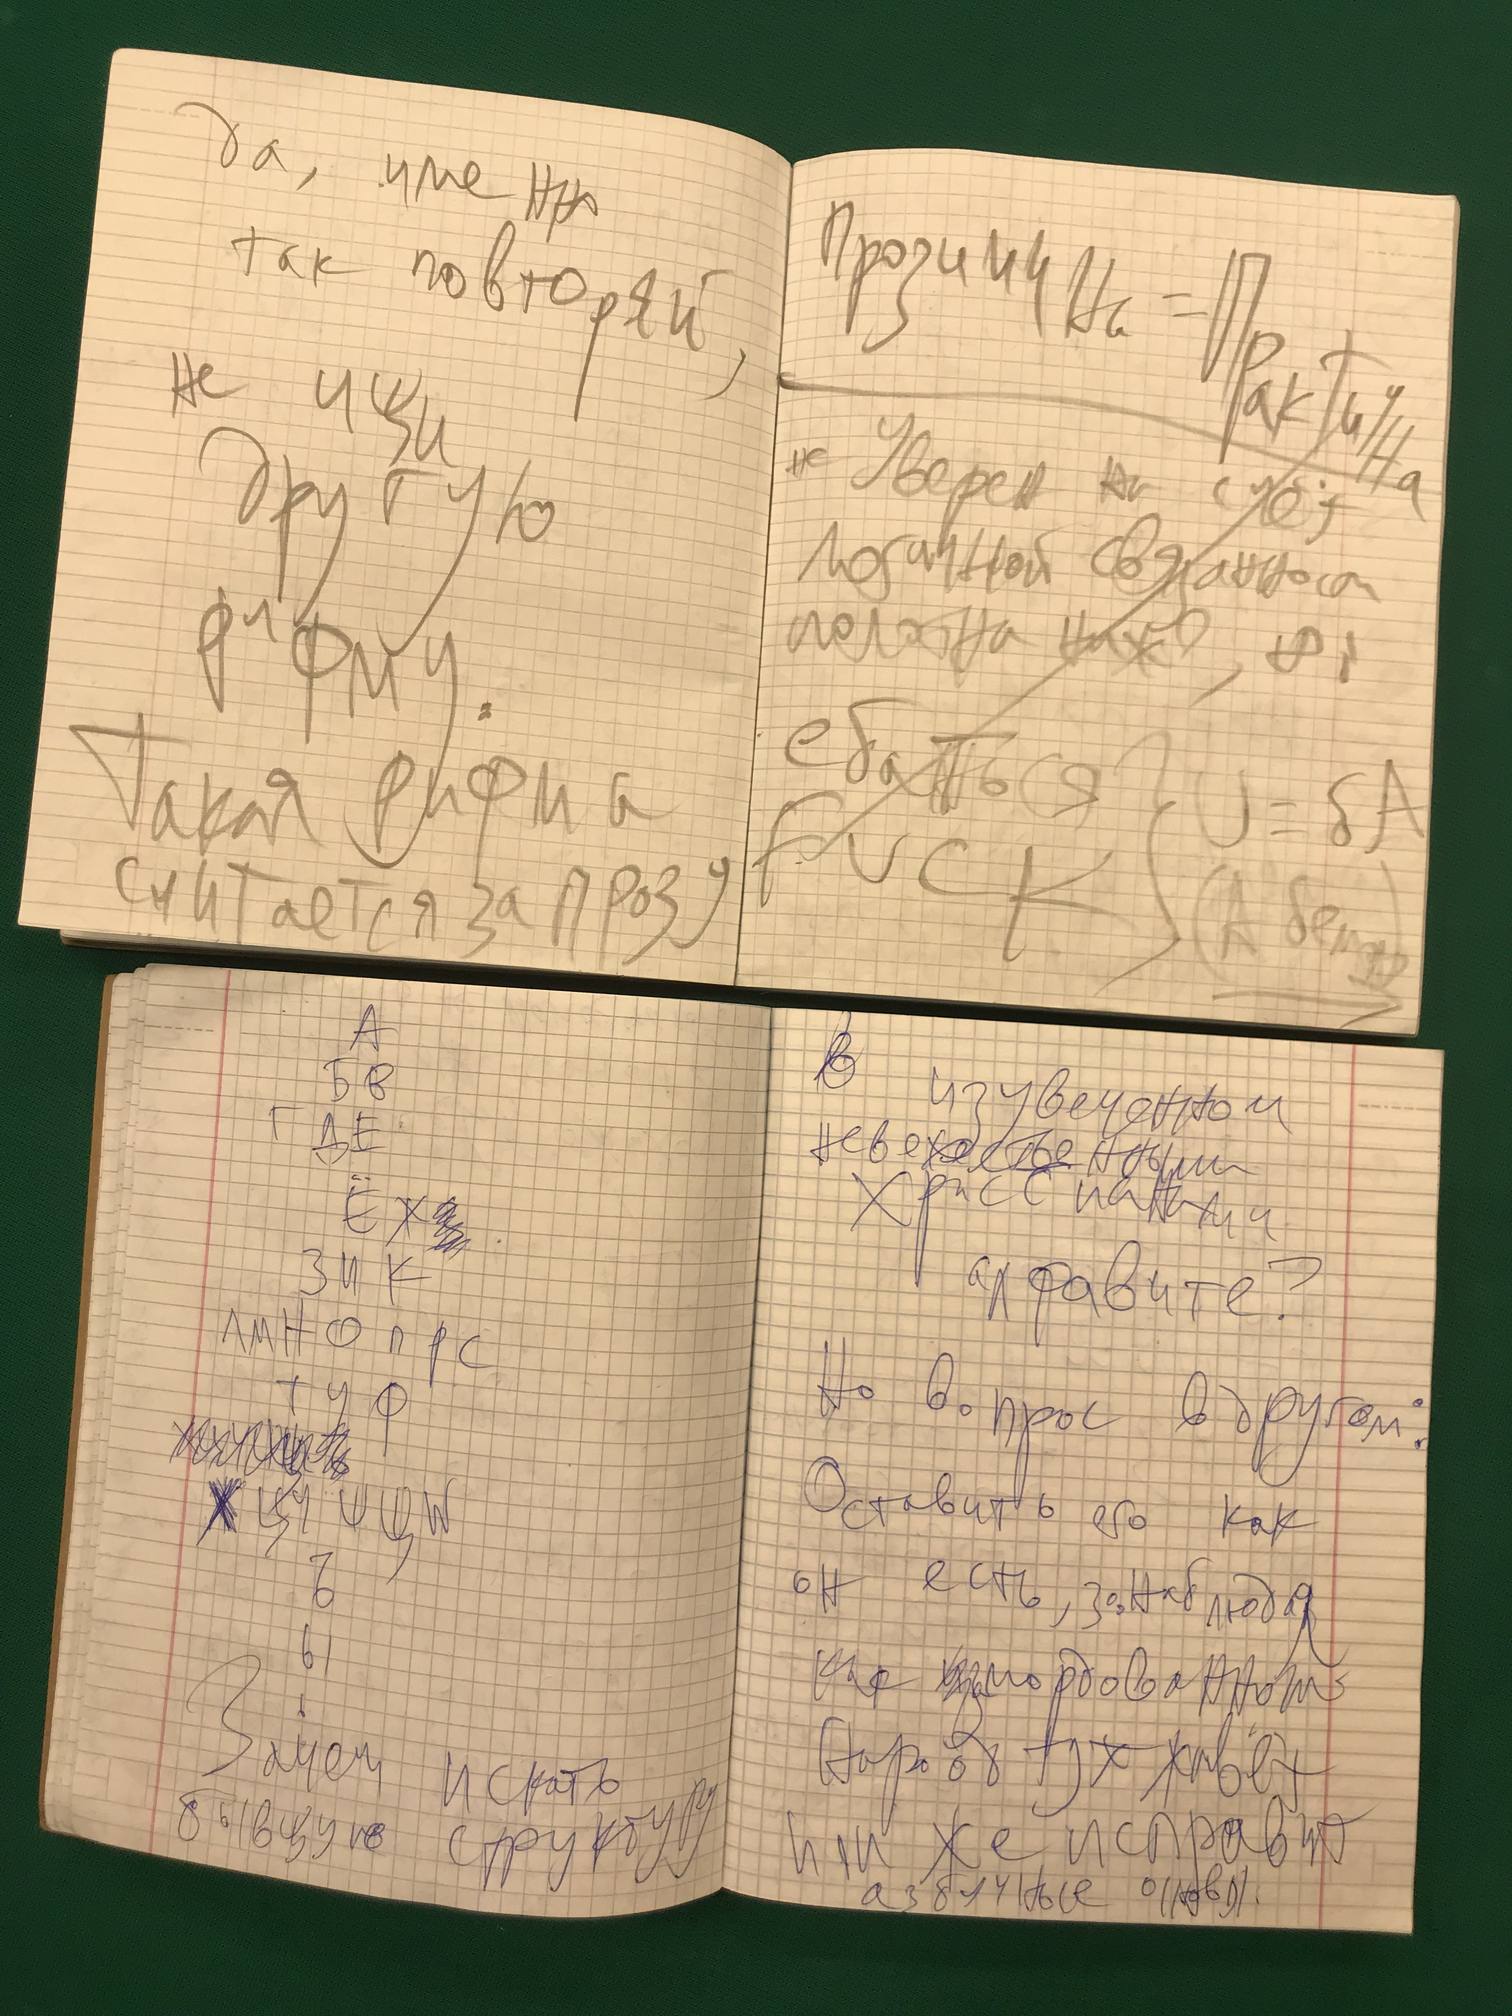 да, именно
так повторяй,
не ищи
другую
рифму.
Такая рифма
считается за прозу
прозиции на = Практи на
не уверен на счёт
логичной связанности
ебаться?
fuck
U = бА
(А бета)
А
БВ
ГДЕ
ЁЖ
ЗИК
ЛМНОПРС
ТУФ
Х Ц Ч Ш Щ
Ъ
Ы
Зачем искать
бывшую структуру
В изувеченном
невежественными
алфавите?
Но вопрос в другом:
Оставить его как
он есть, наблюдая
как
народа дух живёт
или же исправить
азбучные основы.